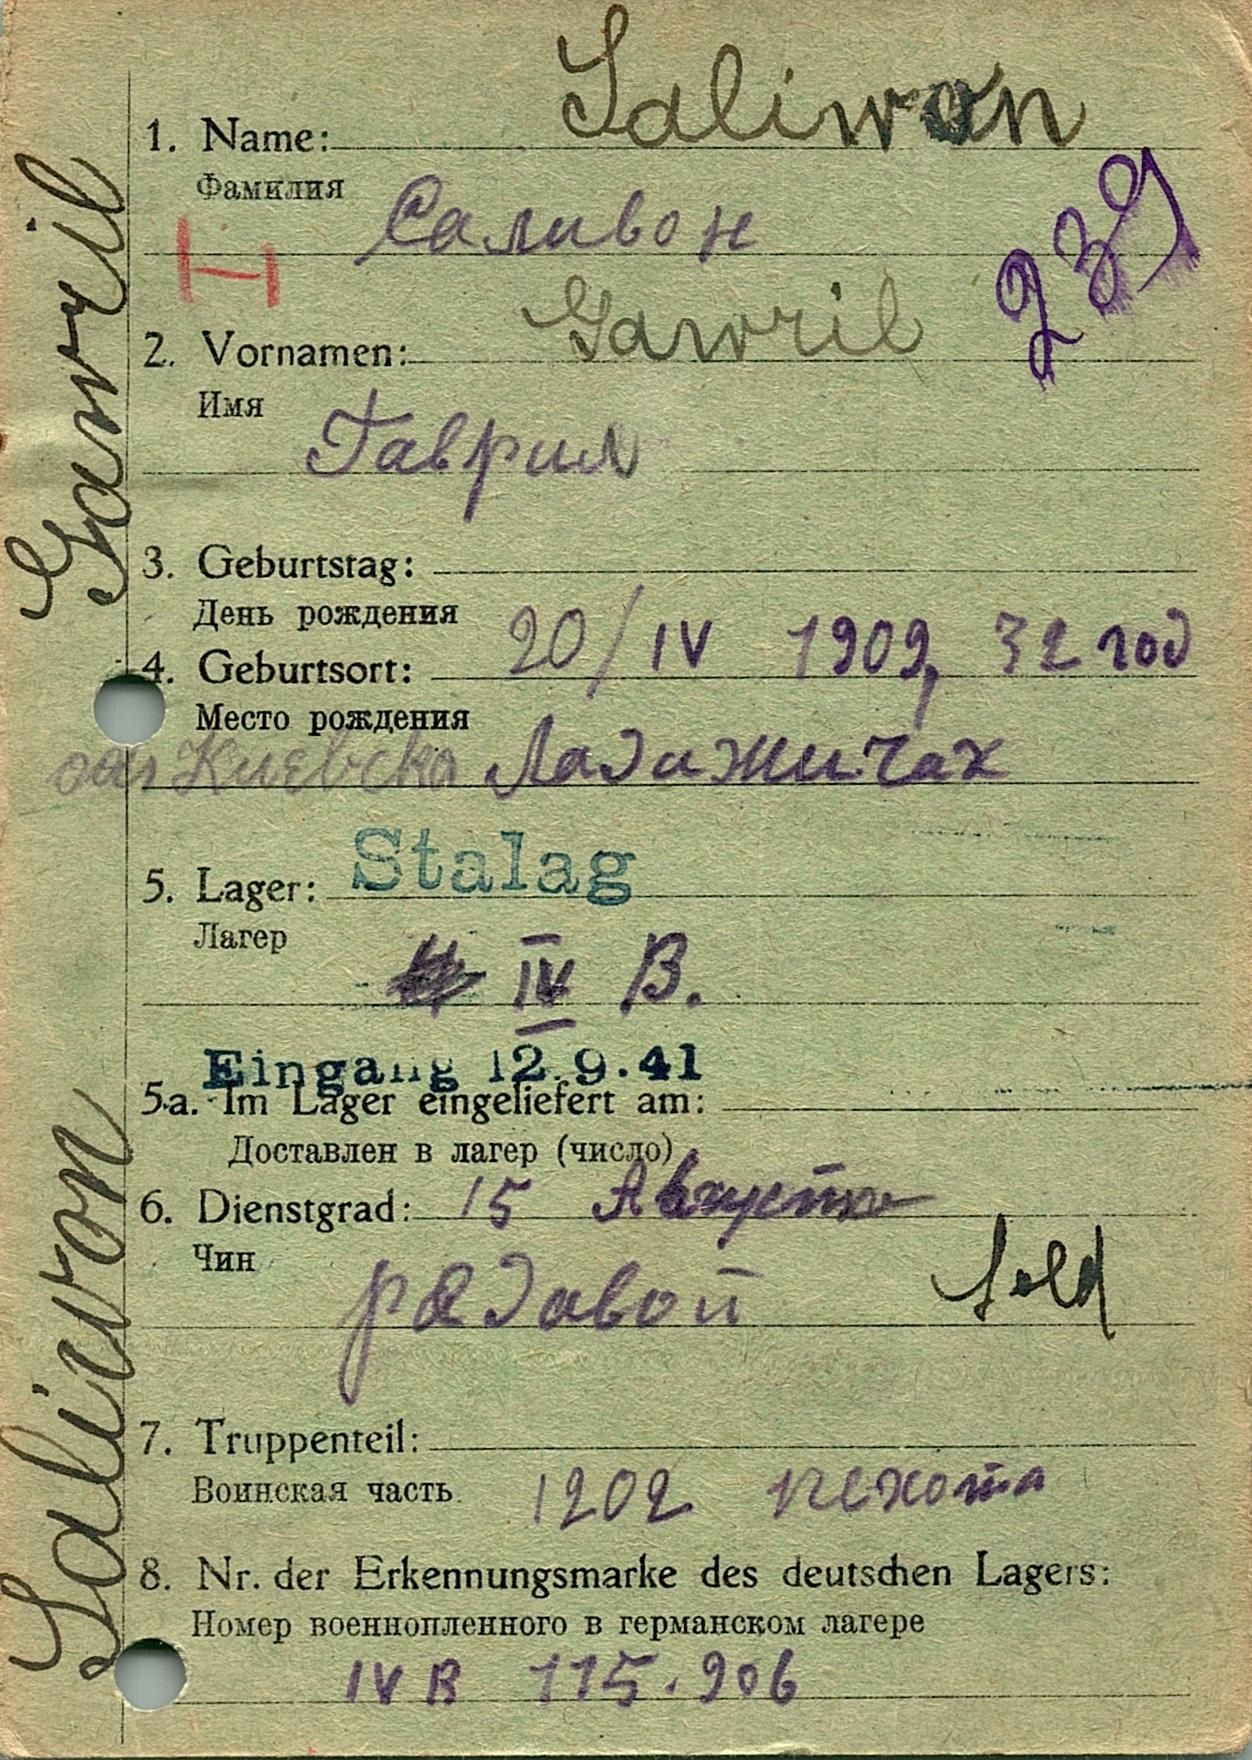 Saliwon
1. Name:
Фамилия
Саливон
239
Gawril
2. Vornamen:
Имя
Гаврил
3. Geburtstag:
День рождения
20/IV 1909, 32 год
4. Geburtsort:
Место рождения
Киевско Ладижичах
Stalag
5. Lager:
Лагер
IV B.
Eingang 12.9.41
5a. Im Lager eingeliefert am:
Доставлен в лагер (число)
6. Dienstgrad: 15 Августа
Чин
рядавой Sold
7. Truppenteil:
Воинская часть
1202 пехота
8. Nr. der Erkennungsmarke des deutschen Lagers:
Номер военнопленного в германском лагере
IV B 115.906
Saliwon Gawril